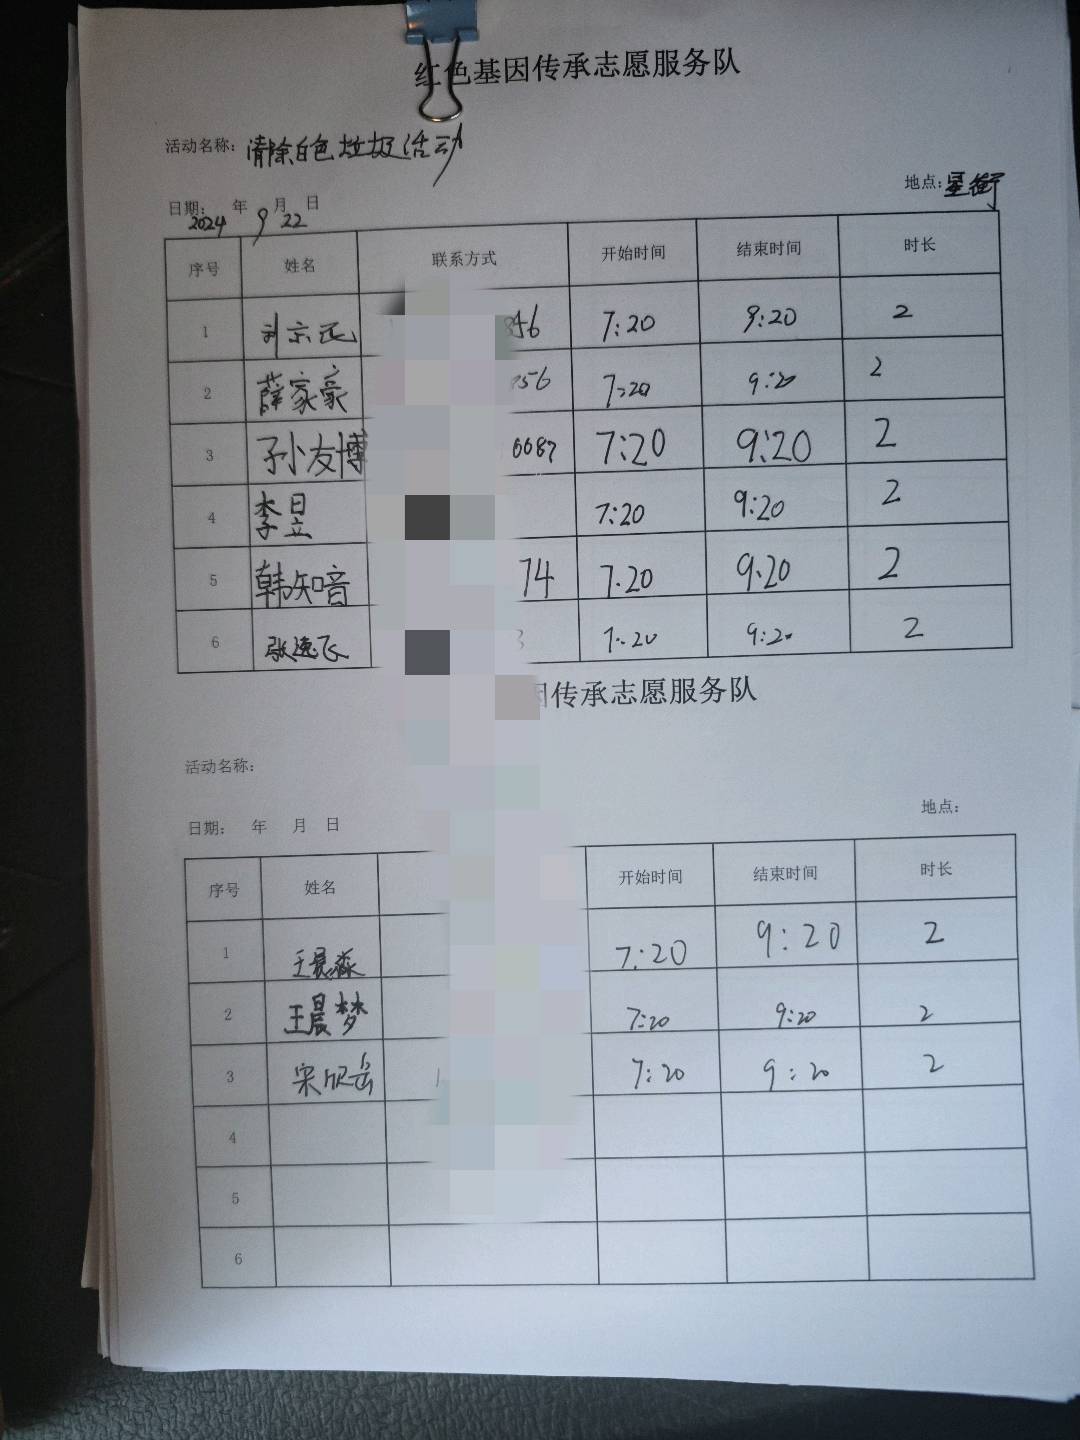 红色基因传承志愿服务队
活动名称: 清除白色垃圾活动
地点: 星街
日期: 2024 年 9 月 22 日
序号 姓名 联系方式 开始时间 结束时间 时长
1 856 7:20 9:20 2
2 薛家豪 856 7:20 9:20 2
3 孙友博 0087 7:20 9:20 2
4 李昱 7:20 9:20 2
5 韩知音 74 7.20 9.20 2
6 张逸飞 7:20 9:20 2
因传承志愿服务队
活动名称:
地点:
日期: 年 月 日
序号 姓名 开始时间 结束时间 时长
1 王晨淼 7:20 9:20 2
2 王晨梦 7:20 9:20 2
3 宋欣岳 7:20 9:20 2
4
5
6